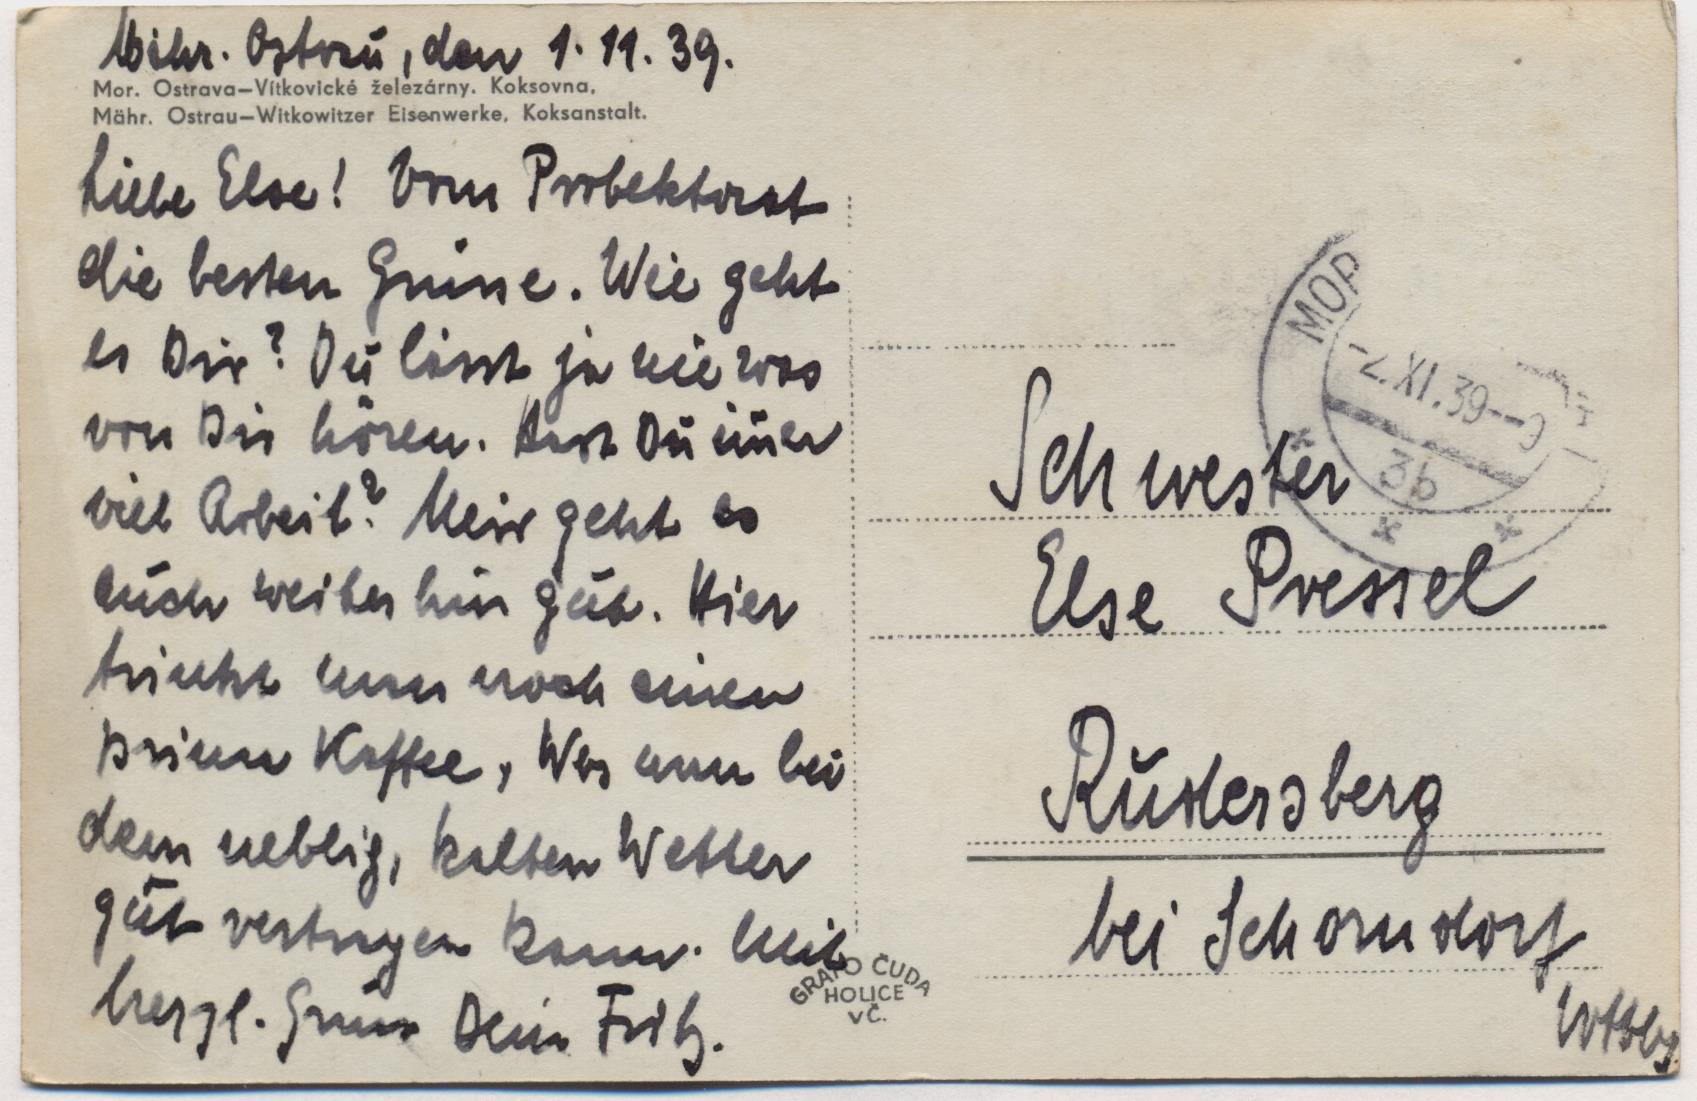 Mähr. Ostrau, den 1.11.39.
Mor. Ostrava—Vítkovické železárny. Koksovna.
Mähr. Ostrau—Witkowitzer Eisenwerke, Koksanstalt.
Liebe Else! Vom Protektorat
die besten Grüsse. Wie geht
es Dir? Du lässt ja nie was
von Dir hören. Hast Du im̅er
viel Arbeit? Mir geht es
auch weiterhin gut. Hier
trinkt man noch einen
prima Kaffee, Was man bei
dem neblig, kalten Wetter
gut vertragen kann. Mit
herzl. Gruss Dein Fritz.
GRAFO ČUDA
HOLICE
VČ.
MOR
-2.XI.39--9
3b
Schwester
Else Pressel
Rudersberg
bei Schorndorf
Wttbg.